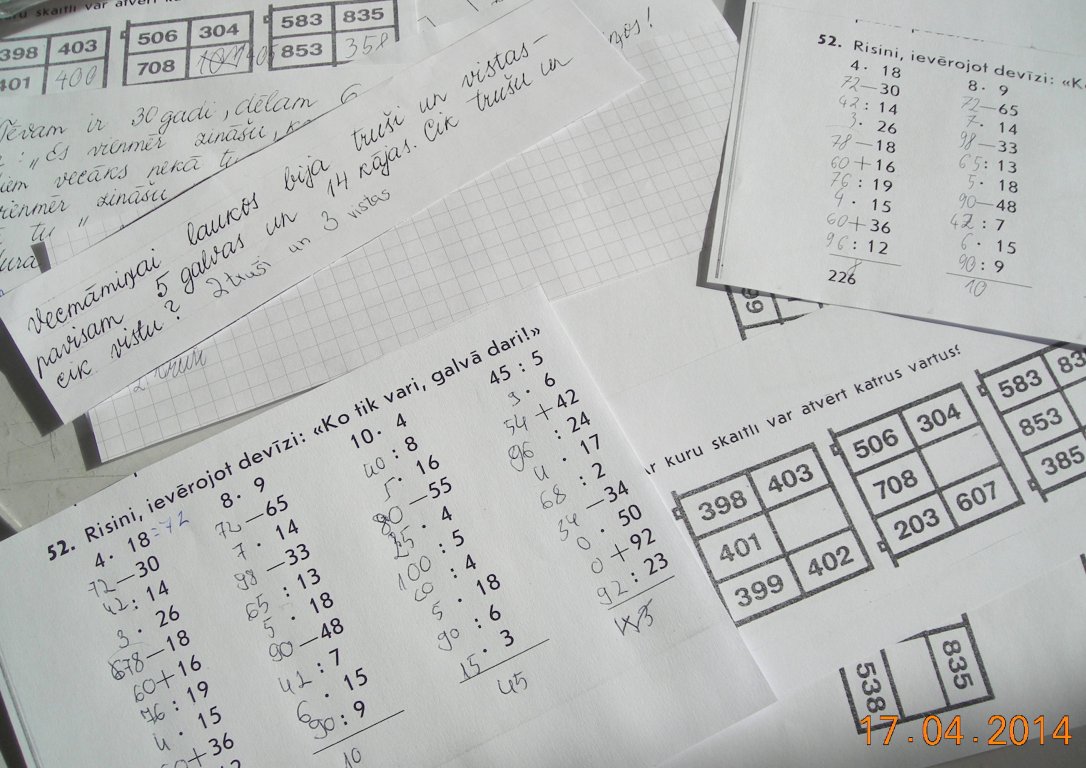 uru skaitli var atvērt ka
398 403
401 400
506 304
708
583 835
853 358
Tēvam ir 30 gadi, dēlam 6
: „Es vienmēr zināšu,
vecāks nekā tu
vienmēr zināšu
tu "
Vecmāmiņai laukos bija truši un vistas –
pavisam 5 galvas un 14 kājas. Cik trušu un
cik vistu? 2 truši un 3 vistas
52. Risini, ievērojot devīzi: «K
4 · 18
72 – 30
42 : 14
3 · 26
78 – 18
60 + 16
76 : 19
4 · 15
60 + 36
96 : 12
8
226
8 · 9
72 – 65
7 · 14
98 – 33
65 : 13
5 · 18
90 – 48
42 : 7
6 · 15
90 : 9
10
52. Risini, ievērojot devīzi: «Ko tik vari, galvā dari!»
4 · 18 = 72
72 – 30
42 : 14
3 · 26
78 – 18
60 + 16
76 : 19
4 · 15
60 + 36
8 · 9
72 – 65
7 · 14
98 – 33
65 : 13
5 · 18
90 – 48
42 : 7
6 · 15
90 : 9
10
10 · 4
40 : 8
5 · 16
80 – 55
25 · 4
100 : 5
20 : 4
5 · 18
90 : 6
15 · 3
45
45 : 5
9 · 6
54 + 42
96 : 24
4 · 17
68 : 2
34 – 34
0 · 50
0 + 92
92 : 23
ar kuru skaitli var atvērt katrus vārtus?
398 403
401
399 402
506 304
708
203 607
583 83
853
385
538 835
17.04.2014